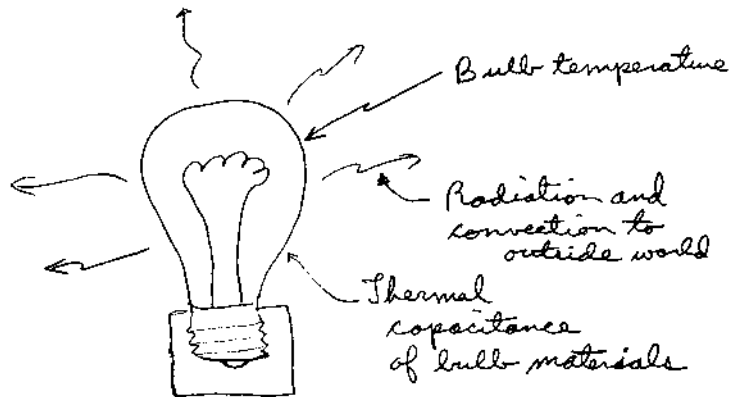 Bulb temperature
Radiation and
convection to
outside world
Thermal
capacitance
of bulb materials